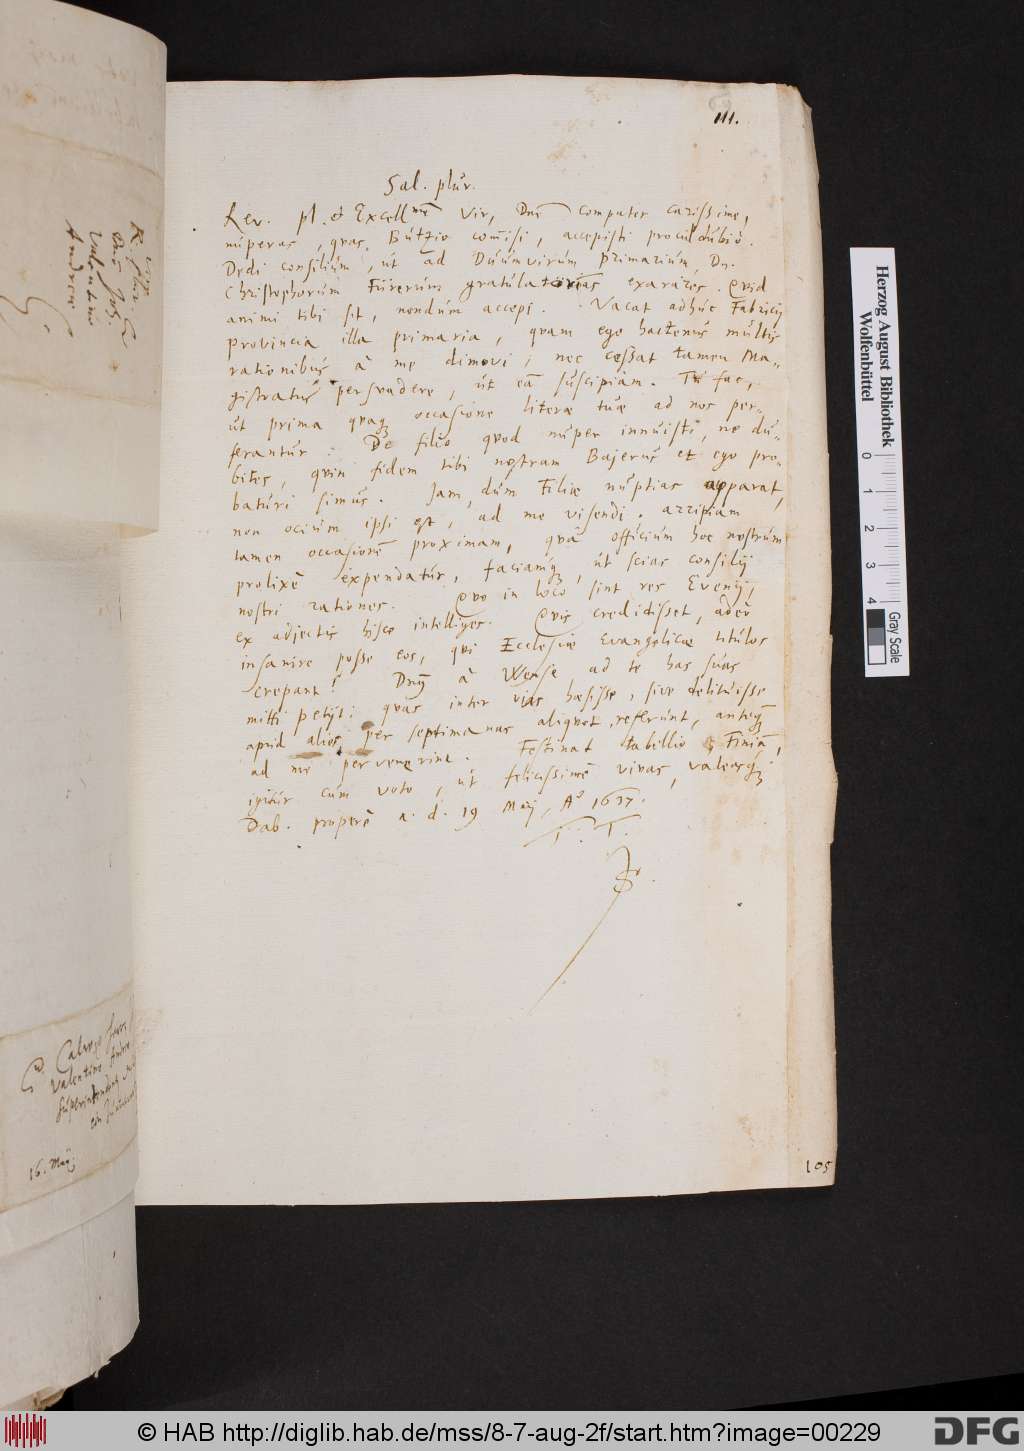 111.
Sal. plur.
Rev. pl. & Excell.me Vir, Dne Compater carissime,
nuperas, quas Butzio com̄isi, accepisti procul dubio.
Dedi consilium, ut ad Duumvirum primarium, Dn.
Christophorum Fürerum gratulatorias exarares. Quid
animi tibi sit, nondum accepi. Vacat adhuc Fabricij
provincia illa primaria, quam ego hactenus multis
rationibus à me dimovi; nec cessat tamen Ma-
gistratus persuadere, ut eā suscipiam. Tu fac,
ut prima quaq; occasione literæ tuæ ad nos per-
ferantur. De filio quod nuper innuisti, ne du-
bites, quin fidem tibi nostram Bajerus et ego pro-
baturi simus. Jam, dum Filiæ nuptias apparat,
non ocium ipsi est, ad me visendi. arripiam
tamen occasionē proximam, quâ officium hoc nostrum
prolixè expendatur, faciamq;, ut scias consilij
nostri rationes. Quo in loco sint res
ex adjectis hisce intelliges. Quis credidisset, adeò
insanire posse eos, qui Ecclesiæ Evangelicæ titulos
crepant! Dn9 à Wense ad te has suas
mitti petijt: quas inter vias hæsisse, sive delituisse
apud alios per septimanas aliquot, referunt, anteq;
ad me pervenerint. Festinat tabellio; Finiā,
igitur cum voto, ut felicissimè vivas, valeasq;.
Dab. properè a. d. 19 Maij, Aº 1637.
T. T.
105
R.
Valentino
Andreæ
Valentino Andreæ
16. Maij
Herzog August Bibliothek
Wolfenbüttel
0 1 2 3 4
Gray Scale
© HAB http://diglib.hab.de/mss/8-7-aug-2f/start.htm?image=00229
DFG